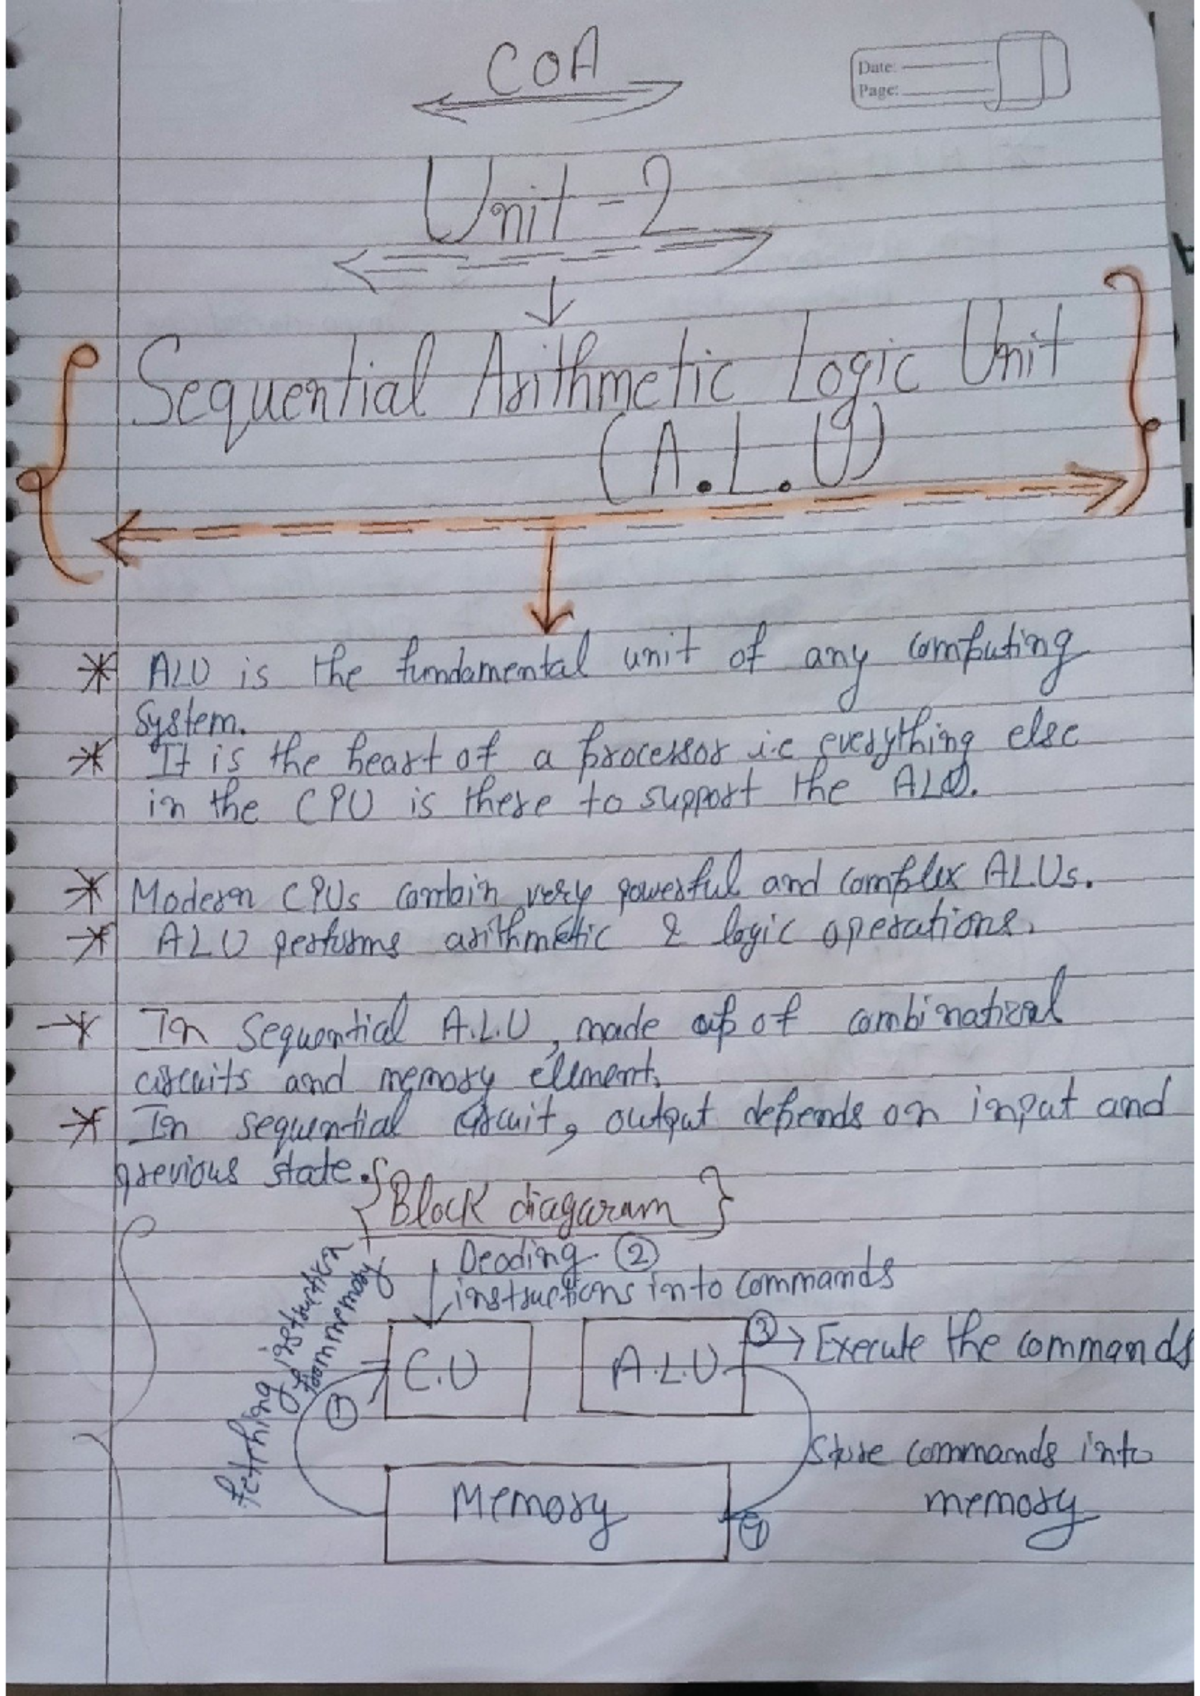 COA
Date:
Page:
Unit-2
Sequential Arithmetic Logic Unit
(A.L.U)
* ALU is the fundamental unit of any computing
system.
* It is the heart of a processor i.e everything else
in the CPU is there to support the ALU.
* Modern CPUs contain very powerful and complex ALUs.
* ALU performs arithmetic & logic operations.
* In Sequential A.L.U, made up of combinational
circuits and memory element.
* In sequential circuit, output depends on input and
previous state.
{Block diagaram}
Decoding ②
instructions into commands
fetching instruction
from memory
①
C.U
A.L.U
③ → Execute the commands
Store commands into
memory
Memory
④